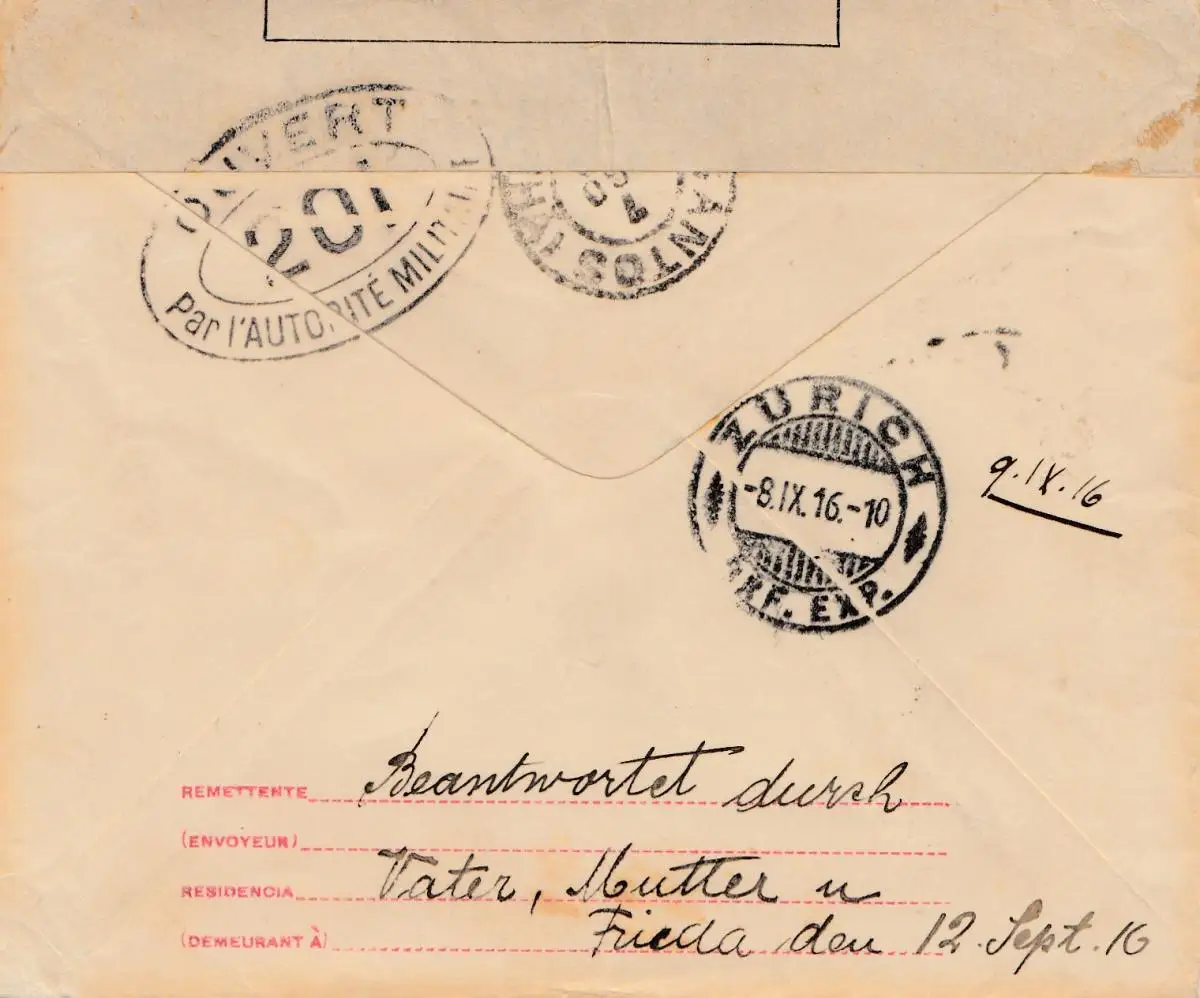 OUVERT
201
Par l'AUTORITÉ MILITAIRE
SANTOS
ZÜRICH
-8.IX.16.-10
BRF. EXP.
9.IX.16
REMETTENTE Beantwortet durch
(ENVOYEUR)
RESIDENCIA Vater, Mutter u
(DEMEURANT À) Frieda den 12. Sept. 16